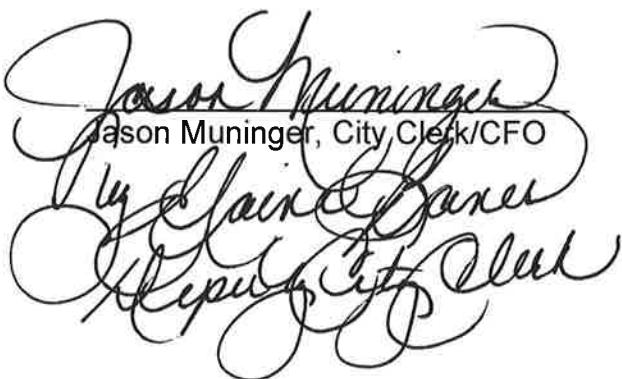 Jason Muninger
Jason Muninger, City Clerk/CFO
by Elaine Banes
Deputy City Clerk